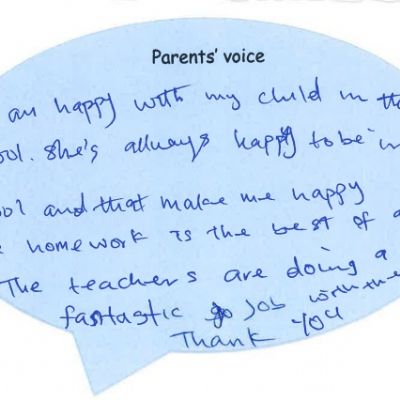 Parents' voice
am happy with my child in the
ool. she's allways happy to be in
ool and that make me happy
e homework is the best of a
The teachers are doing a
fasttastic go job with the
Thank you